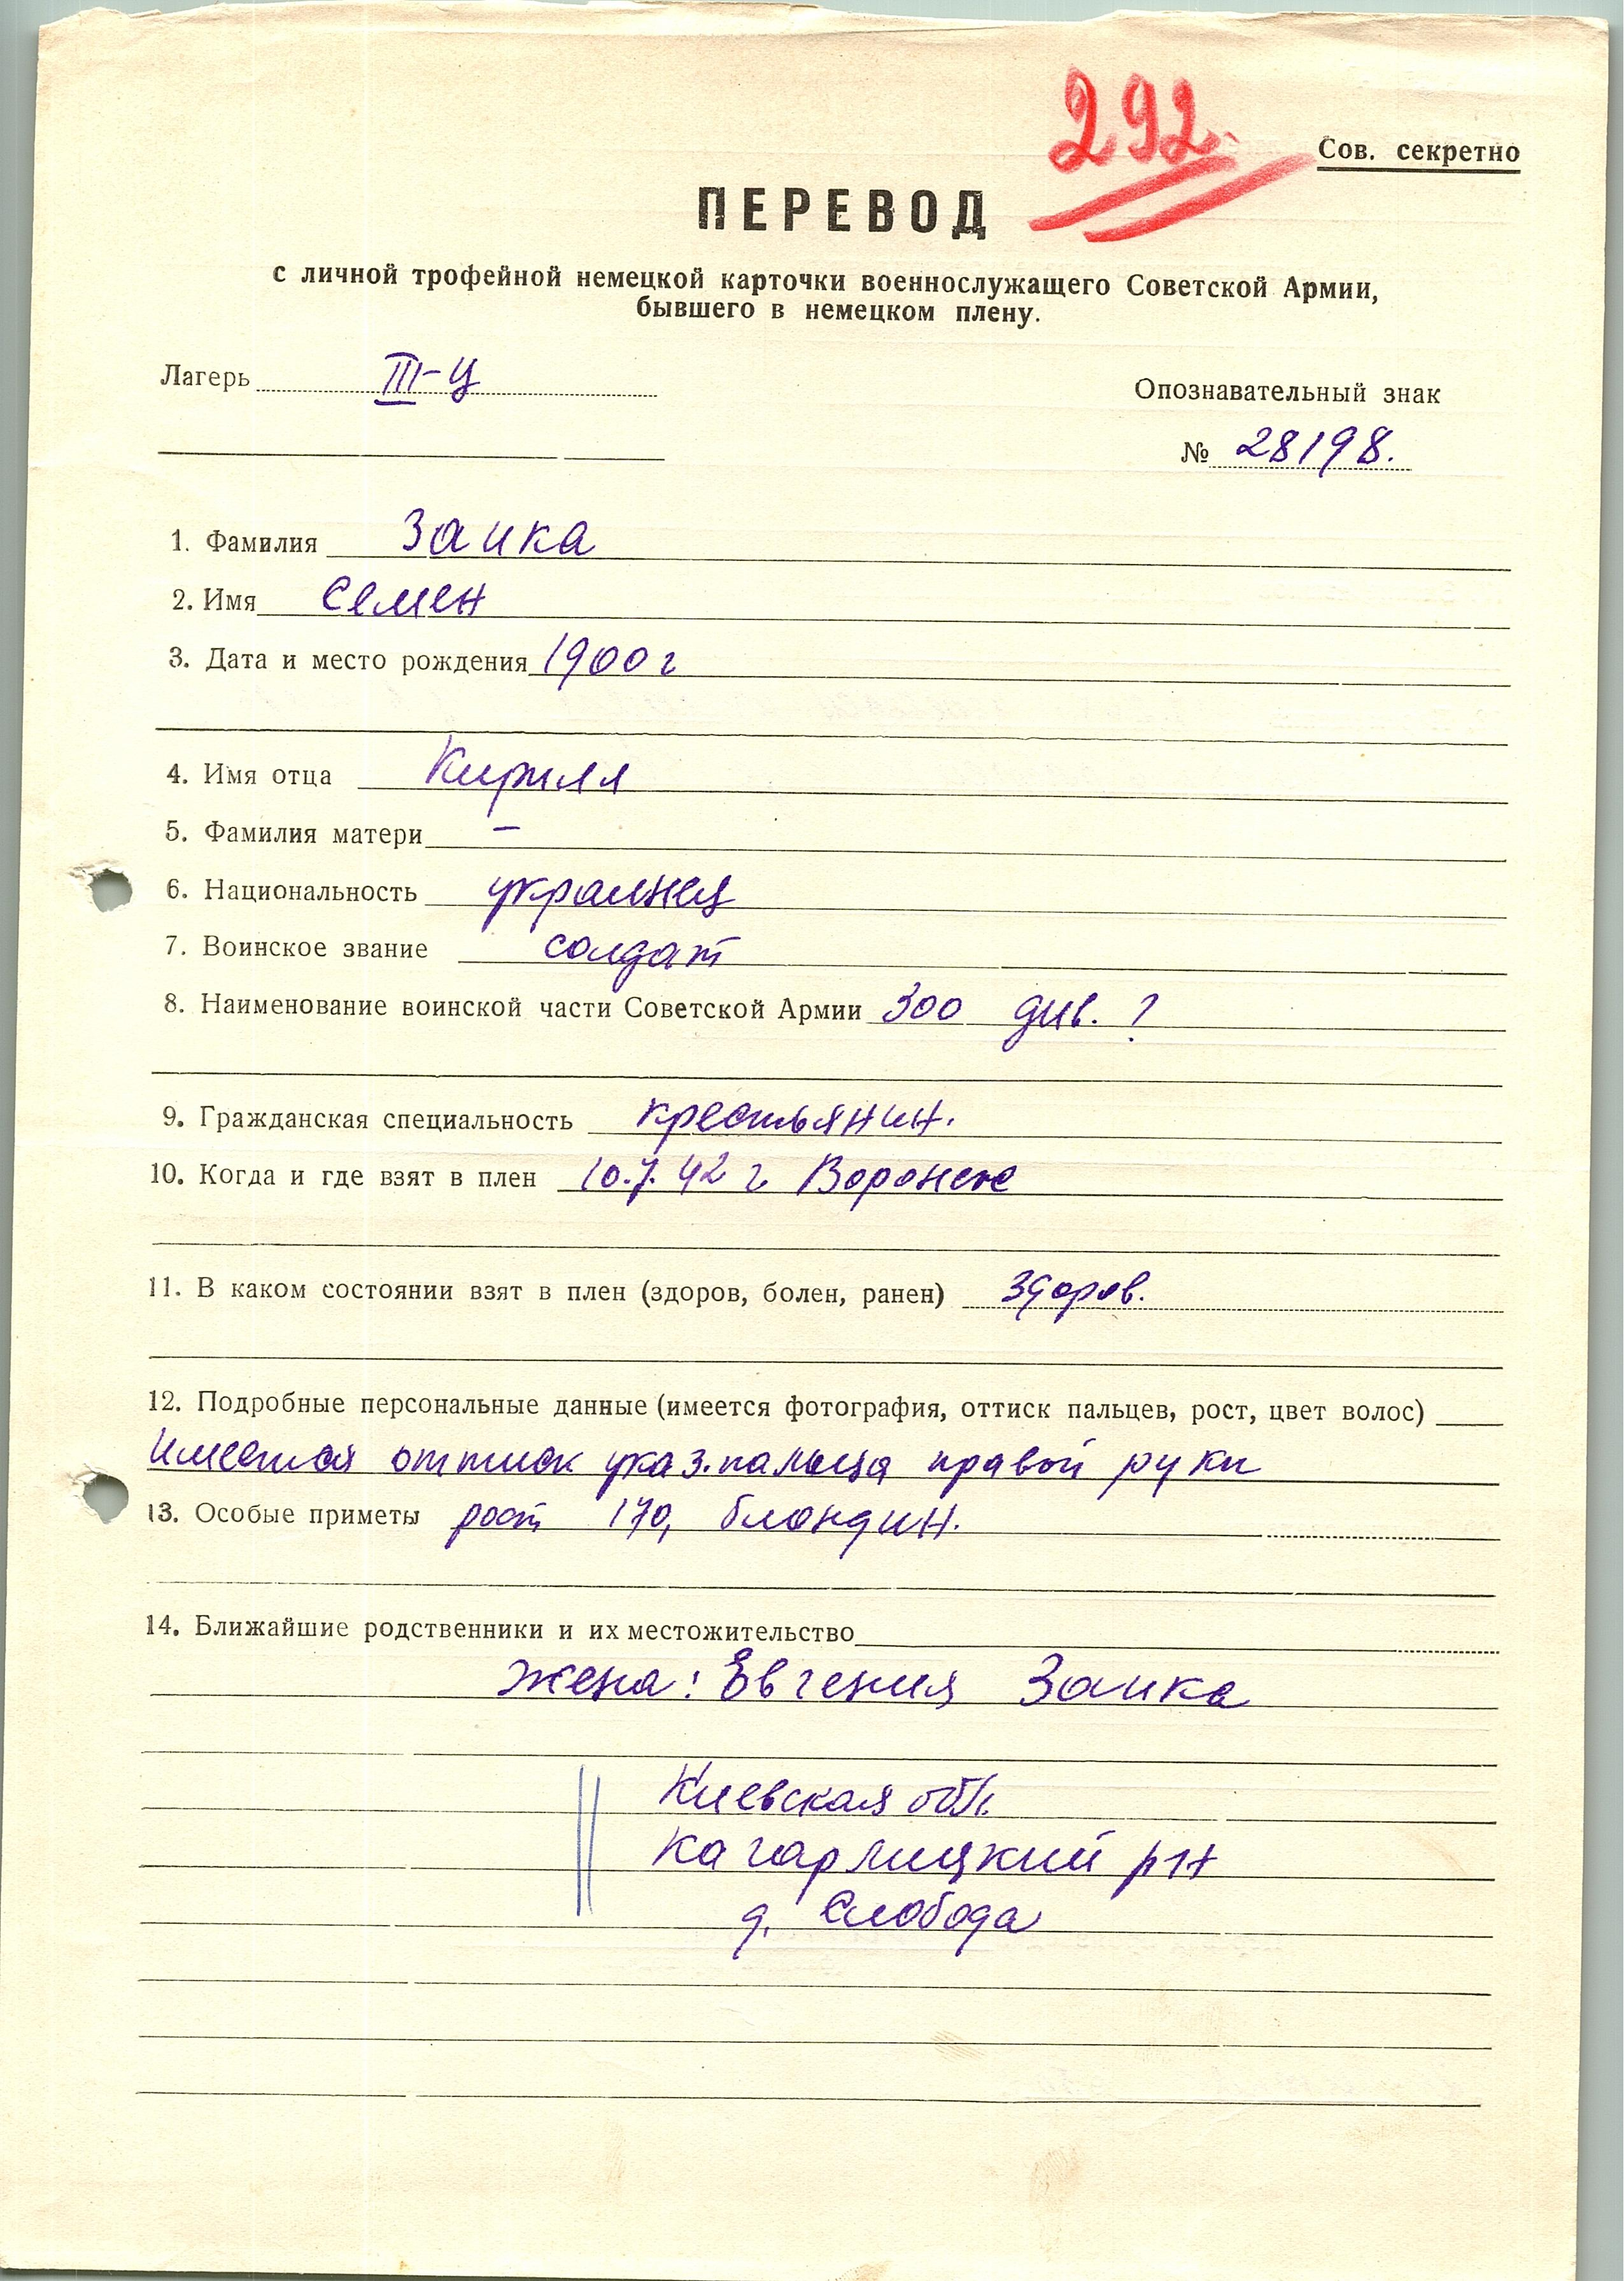 292.
Сов. секретно
ПЕРЕВОД
с личной трофейной немецкой карточки военнослужащего Советской Армии,
бывшего в немецком плену.
Лагерь III-Ц
Опознавательный знак
№ 28198.
1. Фамилия Заика
2. Имя Семен
3. Дата и место рождения 1900 г
4. Имя отца Кирилл
5. Фамилия матери –
6. Национальность украинец
7. Воинское звание солдат
8. Наименование воинской части Советской Армии 300 див. ?
9. Гражданская специальность крестьянин.
10. Когда и где взят в плен 10.7.42 г. Воронеж
11. В каком состоянии взят в плен (здоров, болен, ранен) здоров.
12. Подробные персональные данные (имеется фотография, оттиск пальцев, рост, цвет волос)
Имеется оттиск указ. пальца правой руки
13. Особые приметы рост 170, блондин.
14. Ближайшие родственники и их местожительство
жена: Евгения Заика
Киевская обл.
Кагарлицкий р-н
д. Слобода